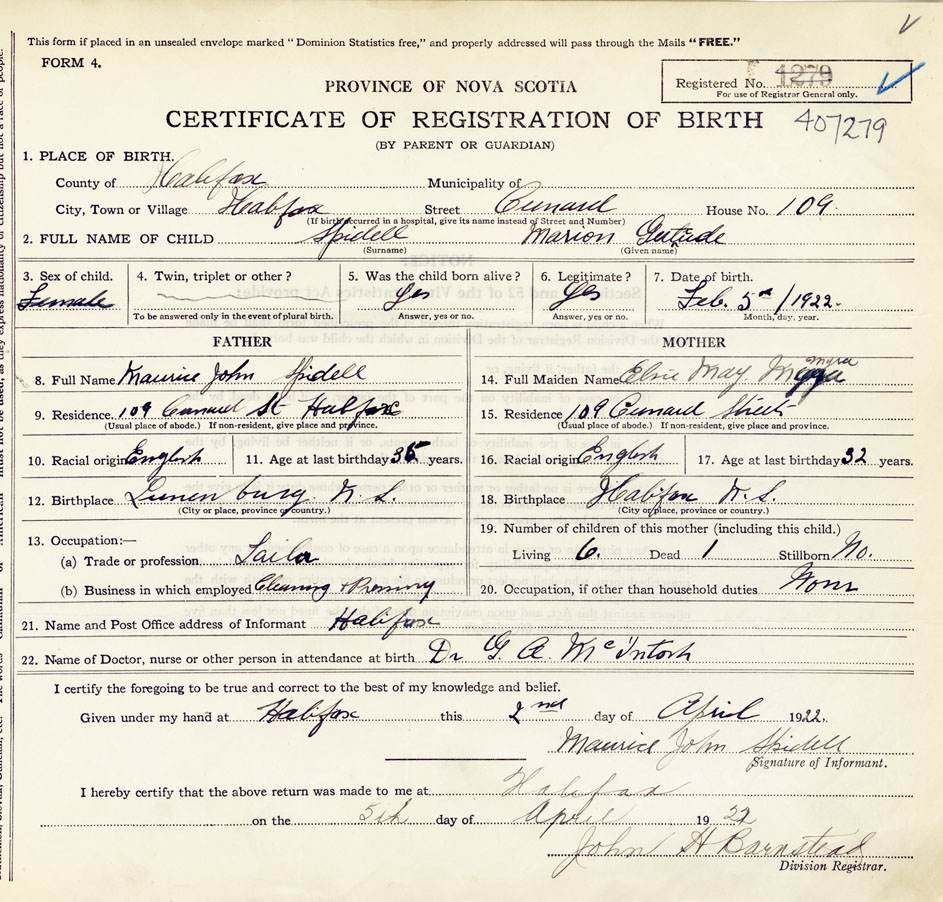 This form if placed in an unsealed envelope marked "Dominion Statistics free," and properly addressed will pass through the Mails "FREE."
FORM 4.
Registered No. 1279
For use of Registrar General only.
PROVINCE OF NOVA SCOTIA
CERTIFICATE OF REGISTRATION OF BIRTH 407279
(BY PARENT OR GUARDIAN)
1. PLACE OF BIRTH.
County of Halifax Municipality of
City, Town or Village Halifax Street Cunard House No. 109.
(If birth occurred in a hospital, give its name instead of Street and Number)
2. FULL NAME OF CHILD Spidell Marion Gertrude
(Surname) (Given name)
3. Sex of child. 4. Twin, triplet or other? 5. Was the child born alive? 6. Legitimate? 7. Date of birth.
Female Yes Yes Feb. 5th /1922.
To be answered only in the event of plural birth. Answer, yes or no. Answer, yes or no. Month, day, year.
FATHER MOTHER
8. Full Name Maurice John Spidell 14. Full Maiden Name Elsie May Myra
9. Residence. 109 Cunard St Halifax 15. Residence 109 Cunard Street
(Usual place of abode.) If non-resident, give place and province. (Usual place of abode.) If non-resident, give place and province.
10. Racial origin English 11. Age at last birthday 35 years. 16. Racial origin English 17. Age at last birthday 32 years.
12. Birthplace Lunenburg. N.S. 18. Birthplace Halifax N.S.
(City or place, province or country.) (City or place, province or country.)
19. Number of children of this mother (including this child.)
13. Occupation:—
(a) Trade or profession Tailor Living 6. Dead 1 Stillborn No.
(b) Business in which employed Cleaning Pressing 20. Occupation, if other than household duties None
21. Name and Post Office address of Informant Halifax
22. Name of Doctor, nurse or other person in attendance at birth Dr G. A. McIntosh
I certify the foregoing to be true and correct to the best of my knowledge and belief.
Given under my hand at Halifax this 2nd day of April 1922.
Maurice John Spidell
Signature of Informant.
I hereby certify that the above return was made to me at Halifax
on the 5th day of April 1922
John H Barnstead
Division Registrar.